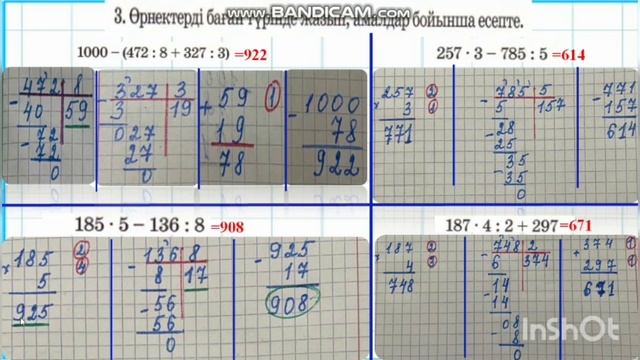 3. Өрнектерді баған түрінде жазып, амалдар бойынша есепте.
www.BANDICAM.com
1000 – (472 : 8 + 327 : 3) =922
257 · 3 – 785 : 5 =614
472 8
40 59
72
72
0
327 3
3 19
027
27
0
+ 59 1
19
78
– 1000
78
922
257 2
× 3 1
771
785 5
5 157
28
25
35
35
0
– 771
157
614
185 · 5 – 136 : 8 =908
187 · 4 : 2 + 297 =671
185 2
× 5 4
925
136 8
8 17
56
56
0
– 925
17
908
187 2
× 4 3
748
748 2
6 374
14
14
08
8
0
+ 374 1
297 1
671
InShOt